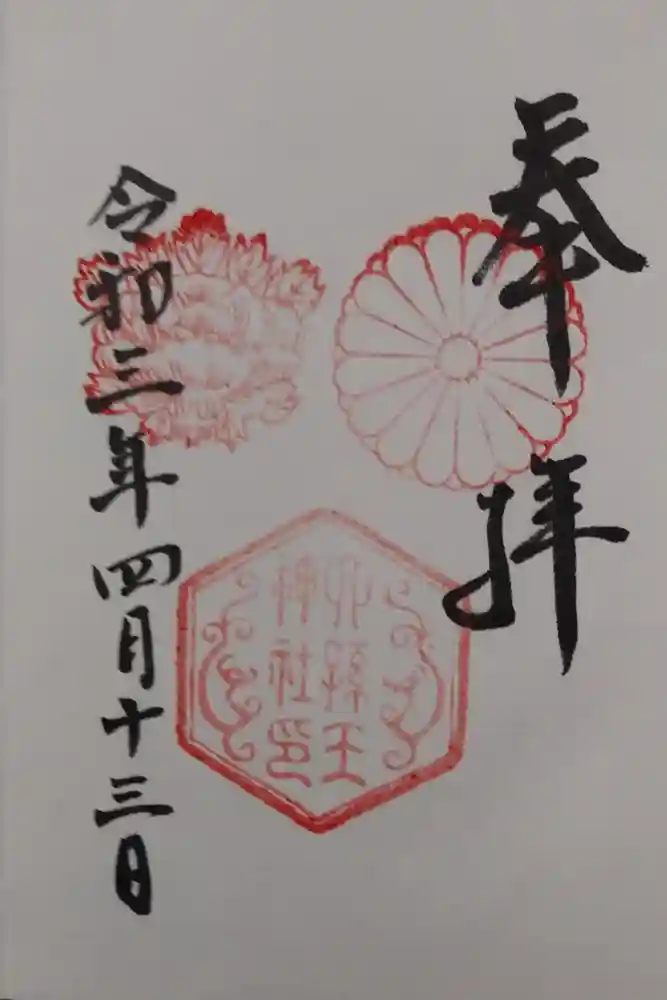 奉拝
六孫王
神社印
令和三年四月十三日